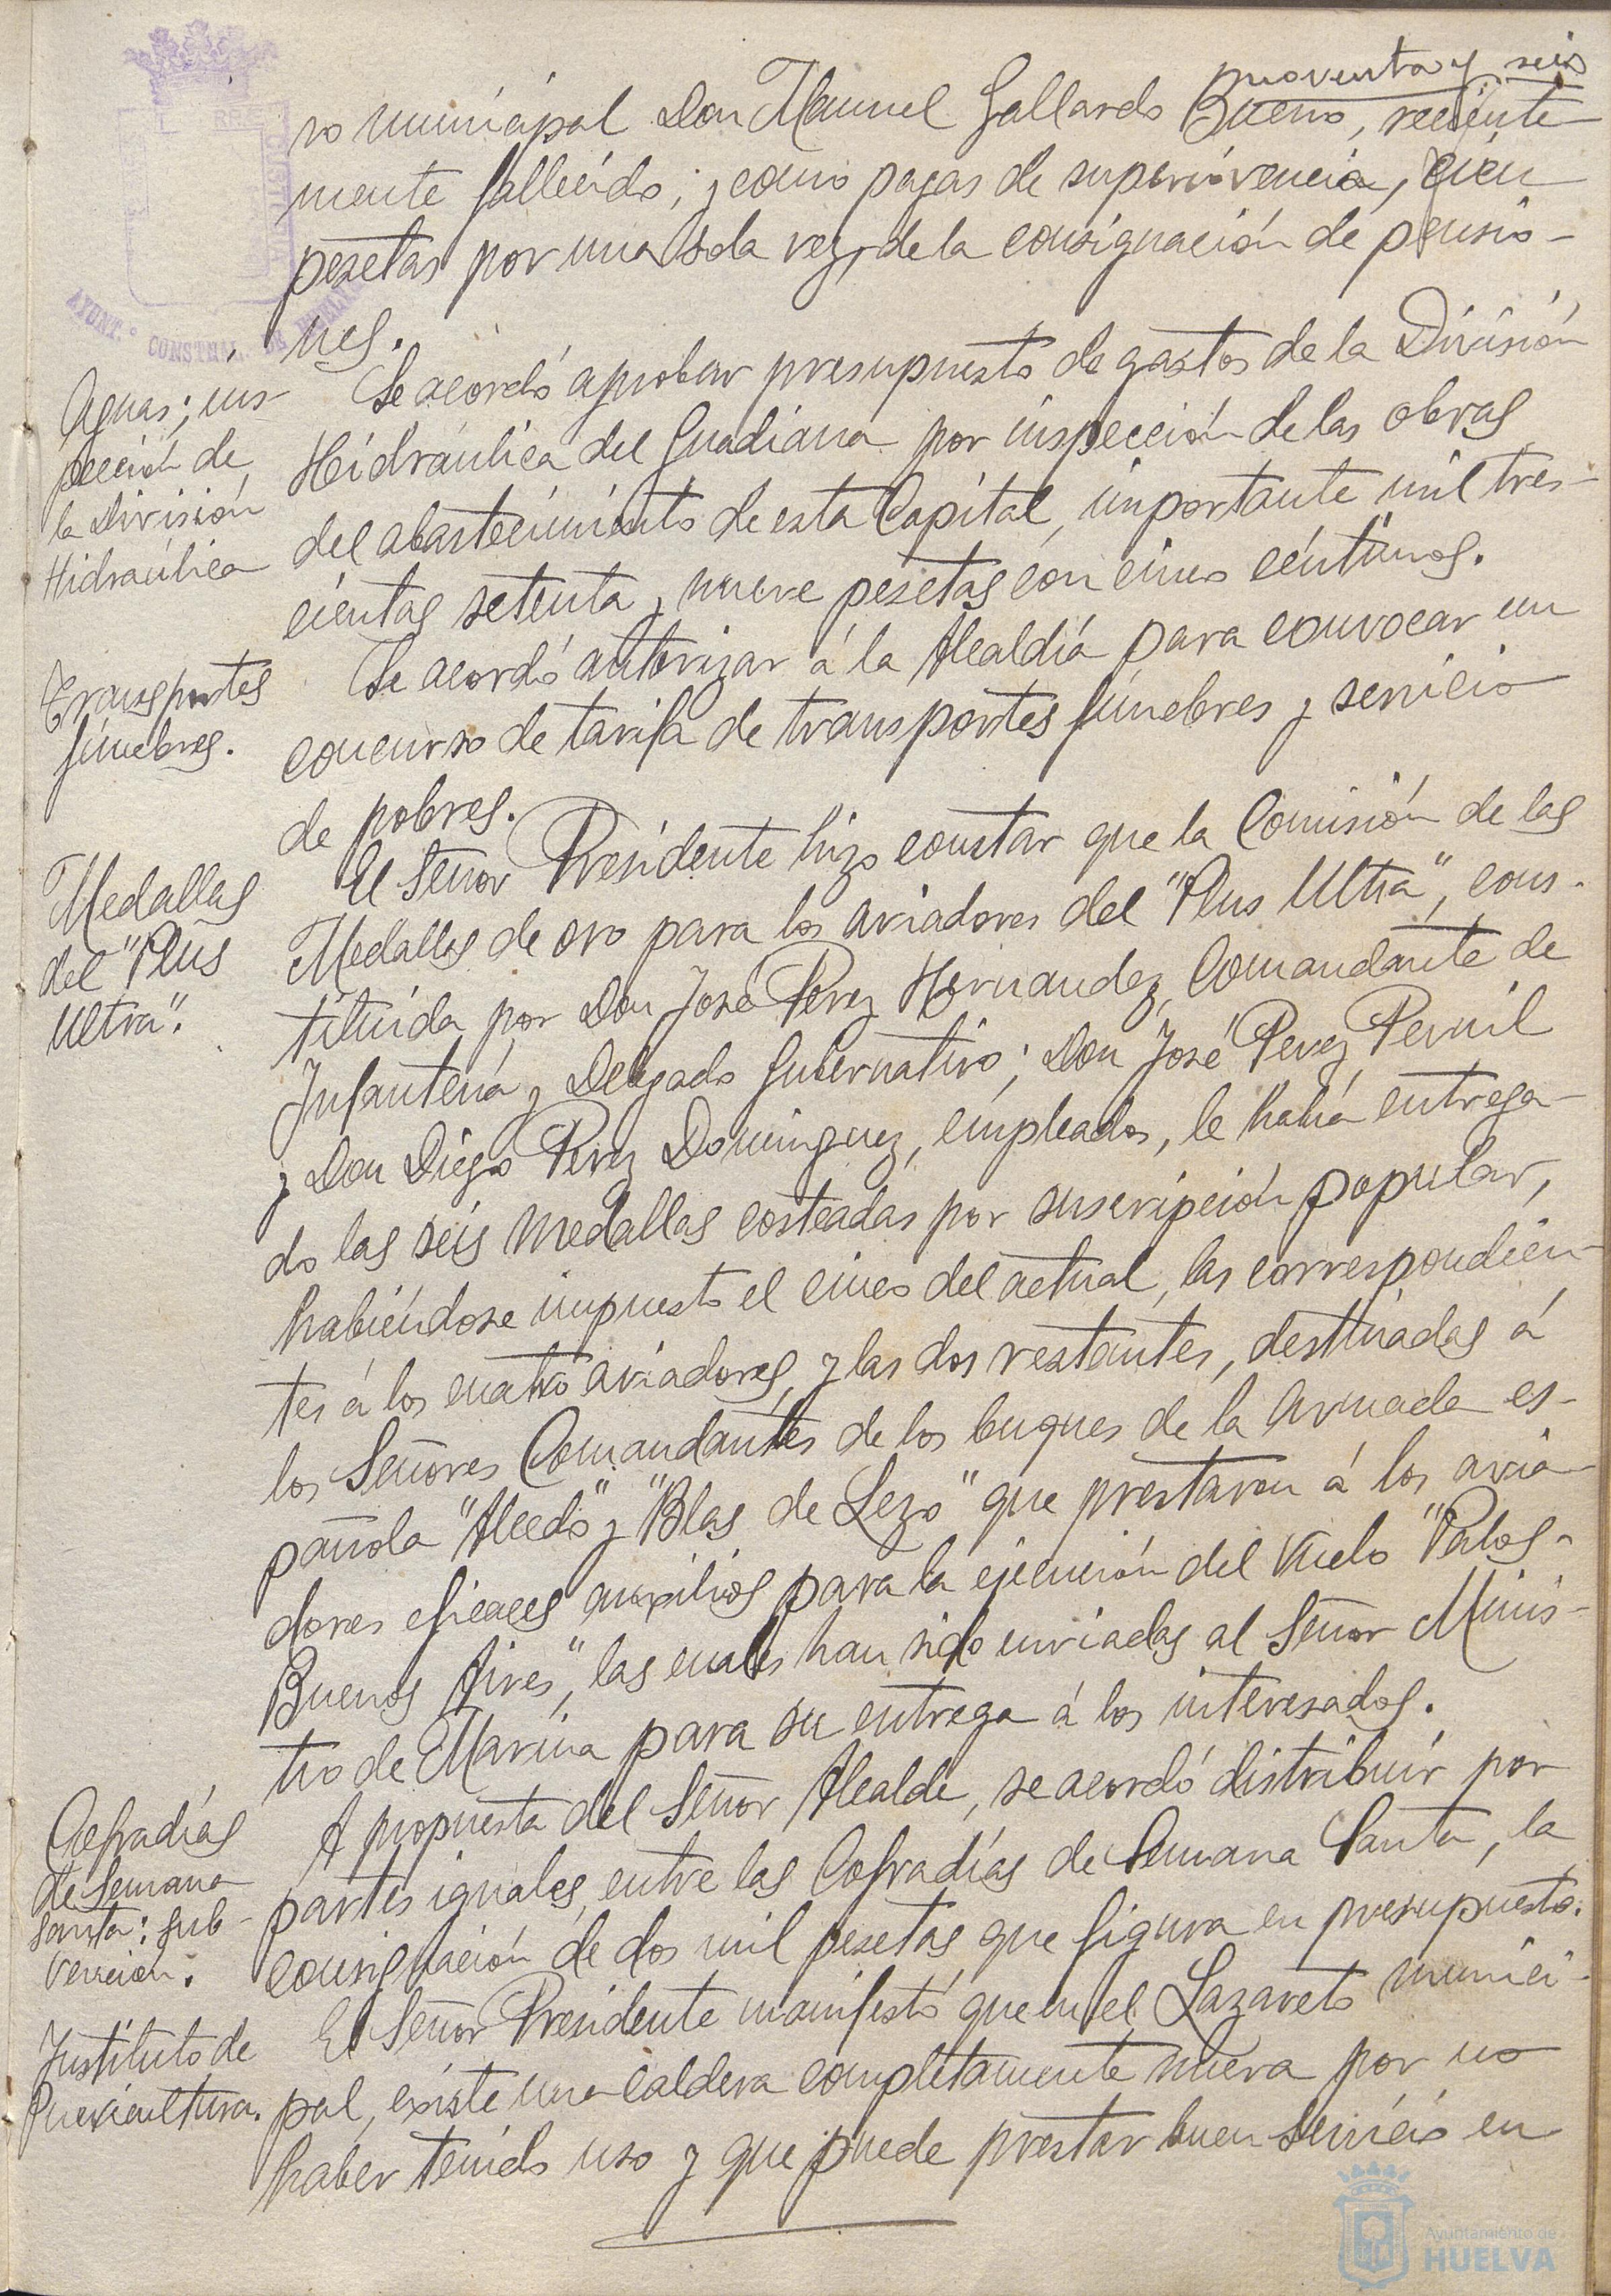 noventa y seis
ro municipal Don Manuel Gallardo Bueno, reciente-
mente fallecido; y como pagas de supervivencia, cien
pesetas por una sola vez, de la consignación de pensio-
nes.
AYUNT.º CONSTNAL. DE HUELVA
Aguas; ins-
pección de
la División
Hidraúlica
Se acordó aprobar presupuesto de gastos de la División
Hidraúlica del Guadiana por inspección de las obras
del abastecimiento de esta Capital, importante mil tres-
cientas setenta y nueve pesetas con cinco céntimos.
Transportes
fúnebres.
Se acordó autorizar á la Alcaldía para convocar un
concurso de tarifa de transportes fúnebres y servicio
de pobres.
Medallas
del "Plus
Ultra".
El Señor Presidente hizo constar que la Comisión de las
Medallas de oro para los aviadores del "Plus Ultra", cons-
tituida por Don José Perez Hernandez, Comandante de
Infantería y Delegado Gubernativo; Don José Perez Pernil
y Don Diego Perez Dominguez, empleados, le había entrega-
do las seis medallas costeadas por suscripción popular,
habiéndose impuesto el cinco del actual, las correspondien-
tes á los cuatro aviadores, y las dos restantes, destinadas á
los Señores Comandantes de los buques de la Armada es-
pañola "Alcedo" y "Blas de Lezo" que prestaron á los avia-
dores eficaces auxilios para la ejecución del vuelo "Palos-
Buenos Aires", las cuales han sido enviadas al Señor Minis-
tro de Marina para su entrega á los interesados.
Cofradías
de Semana
Santa: sub-
vención.
A propuesta del Señor Alcalde, se acordó distribuir por
partes iguales, entre las Cofradías de Semana Santa, la
consignación de dos mil pesetas que figura en presupuesto.
Instituto de
Puericultura.
El Señor Presidente manifestó que en el Lazareto munici-
pal, existe una caldera completamente nueva por no
haber tenido uso y que puede prestar buen servicio en
Ayuntamiento de
HUELVA